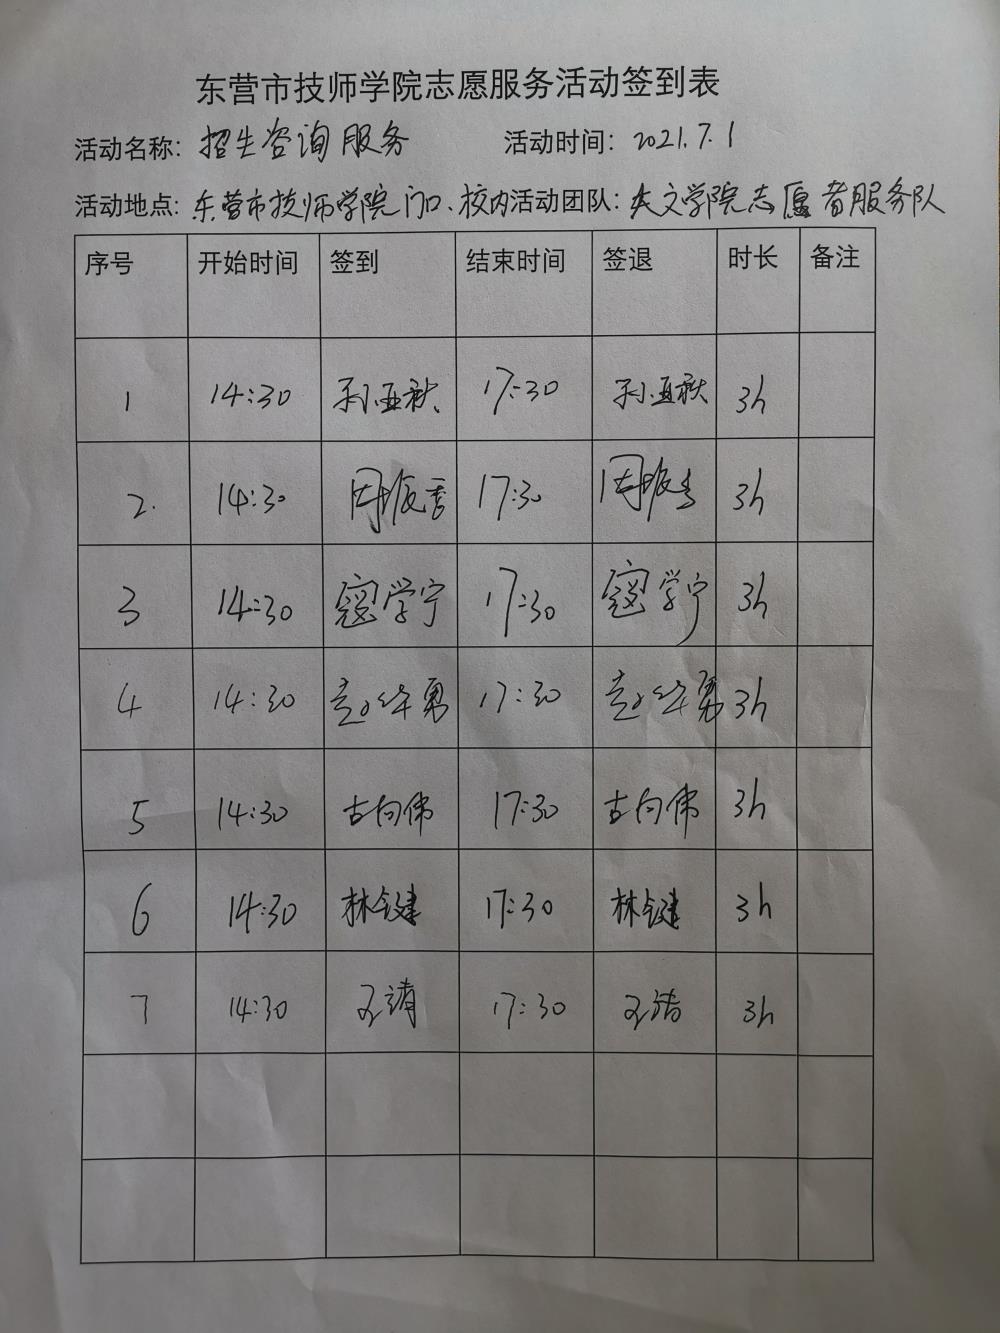 东营市技师学院志愿服务活动签到表
活动名称：招生咨询服务 活动时间：2021.7.1
活动地点：东营市技师学院门口、校内 活动团队：大文学院志愿者服务队
序号 开始时间 签到 结束时间 签退 时长 备注
1 14:30 孙亚秋 17:30 孙亚秋 3h
2. 14:30 17:30 3h
3 14:30 寇学宁 17:30 寇学宁 3h
4 14:30 赵华勇 17:30 赵华勇 3h
5 14:30 古向伟 17:30 古向伟 3h
6 14:30 林健 17:30 林健 3h
7 14:30 17:30 3h